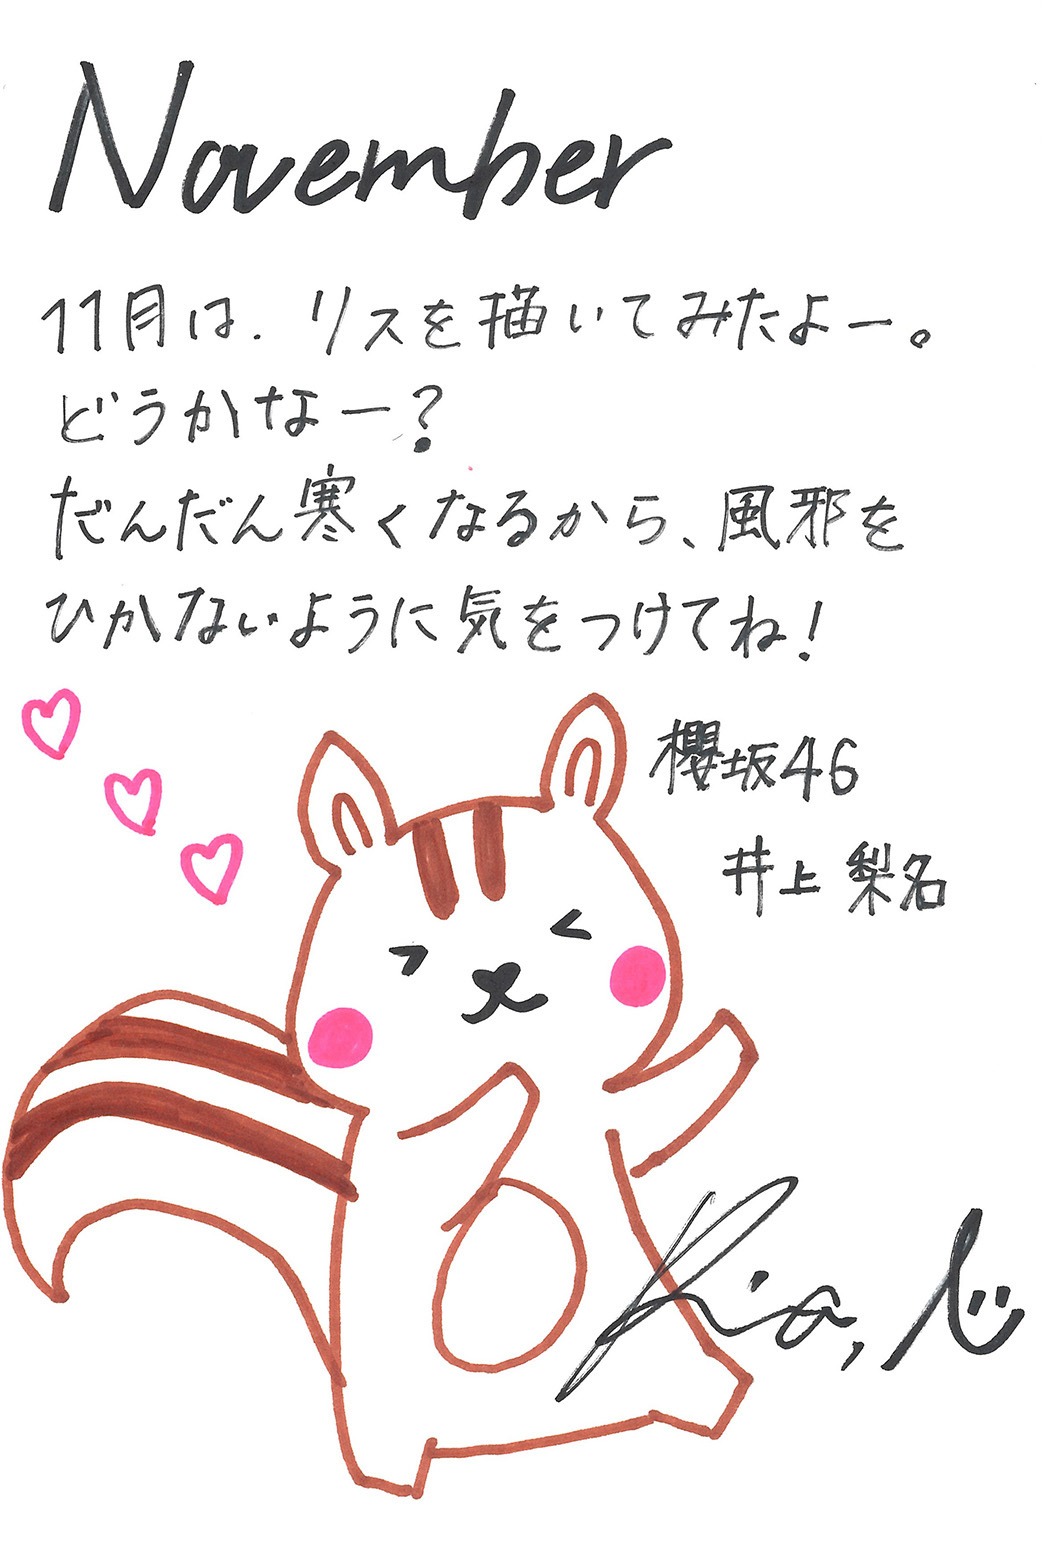 November
11月は、リスを描いてみたよー。
どうかなー？
だんだん寒くなるから、風邪を
ひかないように気をつけてね！
櫻坂46
井上 梨名